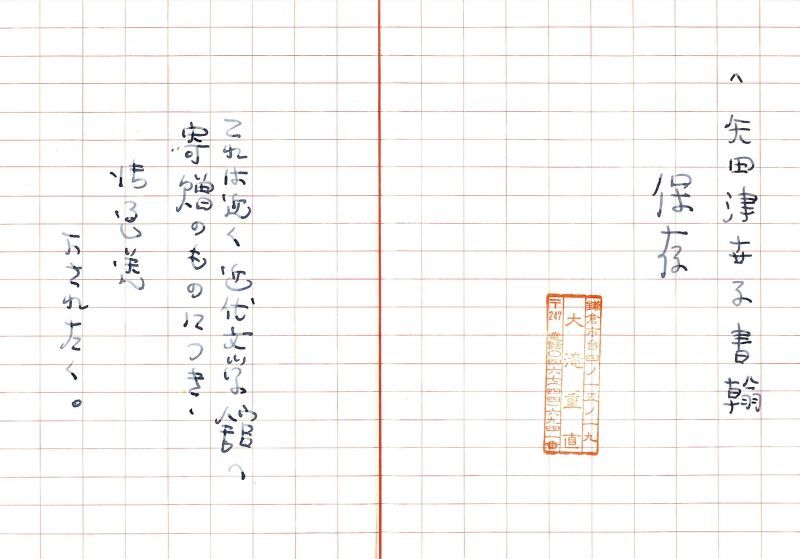 矢田津世子書翰
保存
鎌倉市台四ノ一五ノ一九
大滝重直
〒247 電話〇四六七
これは近く近代文学館へ
寄贈のものにつき、
下されたく。